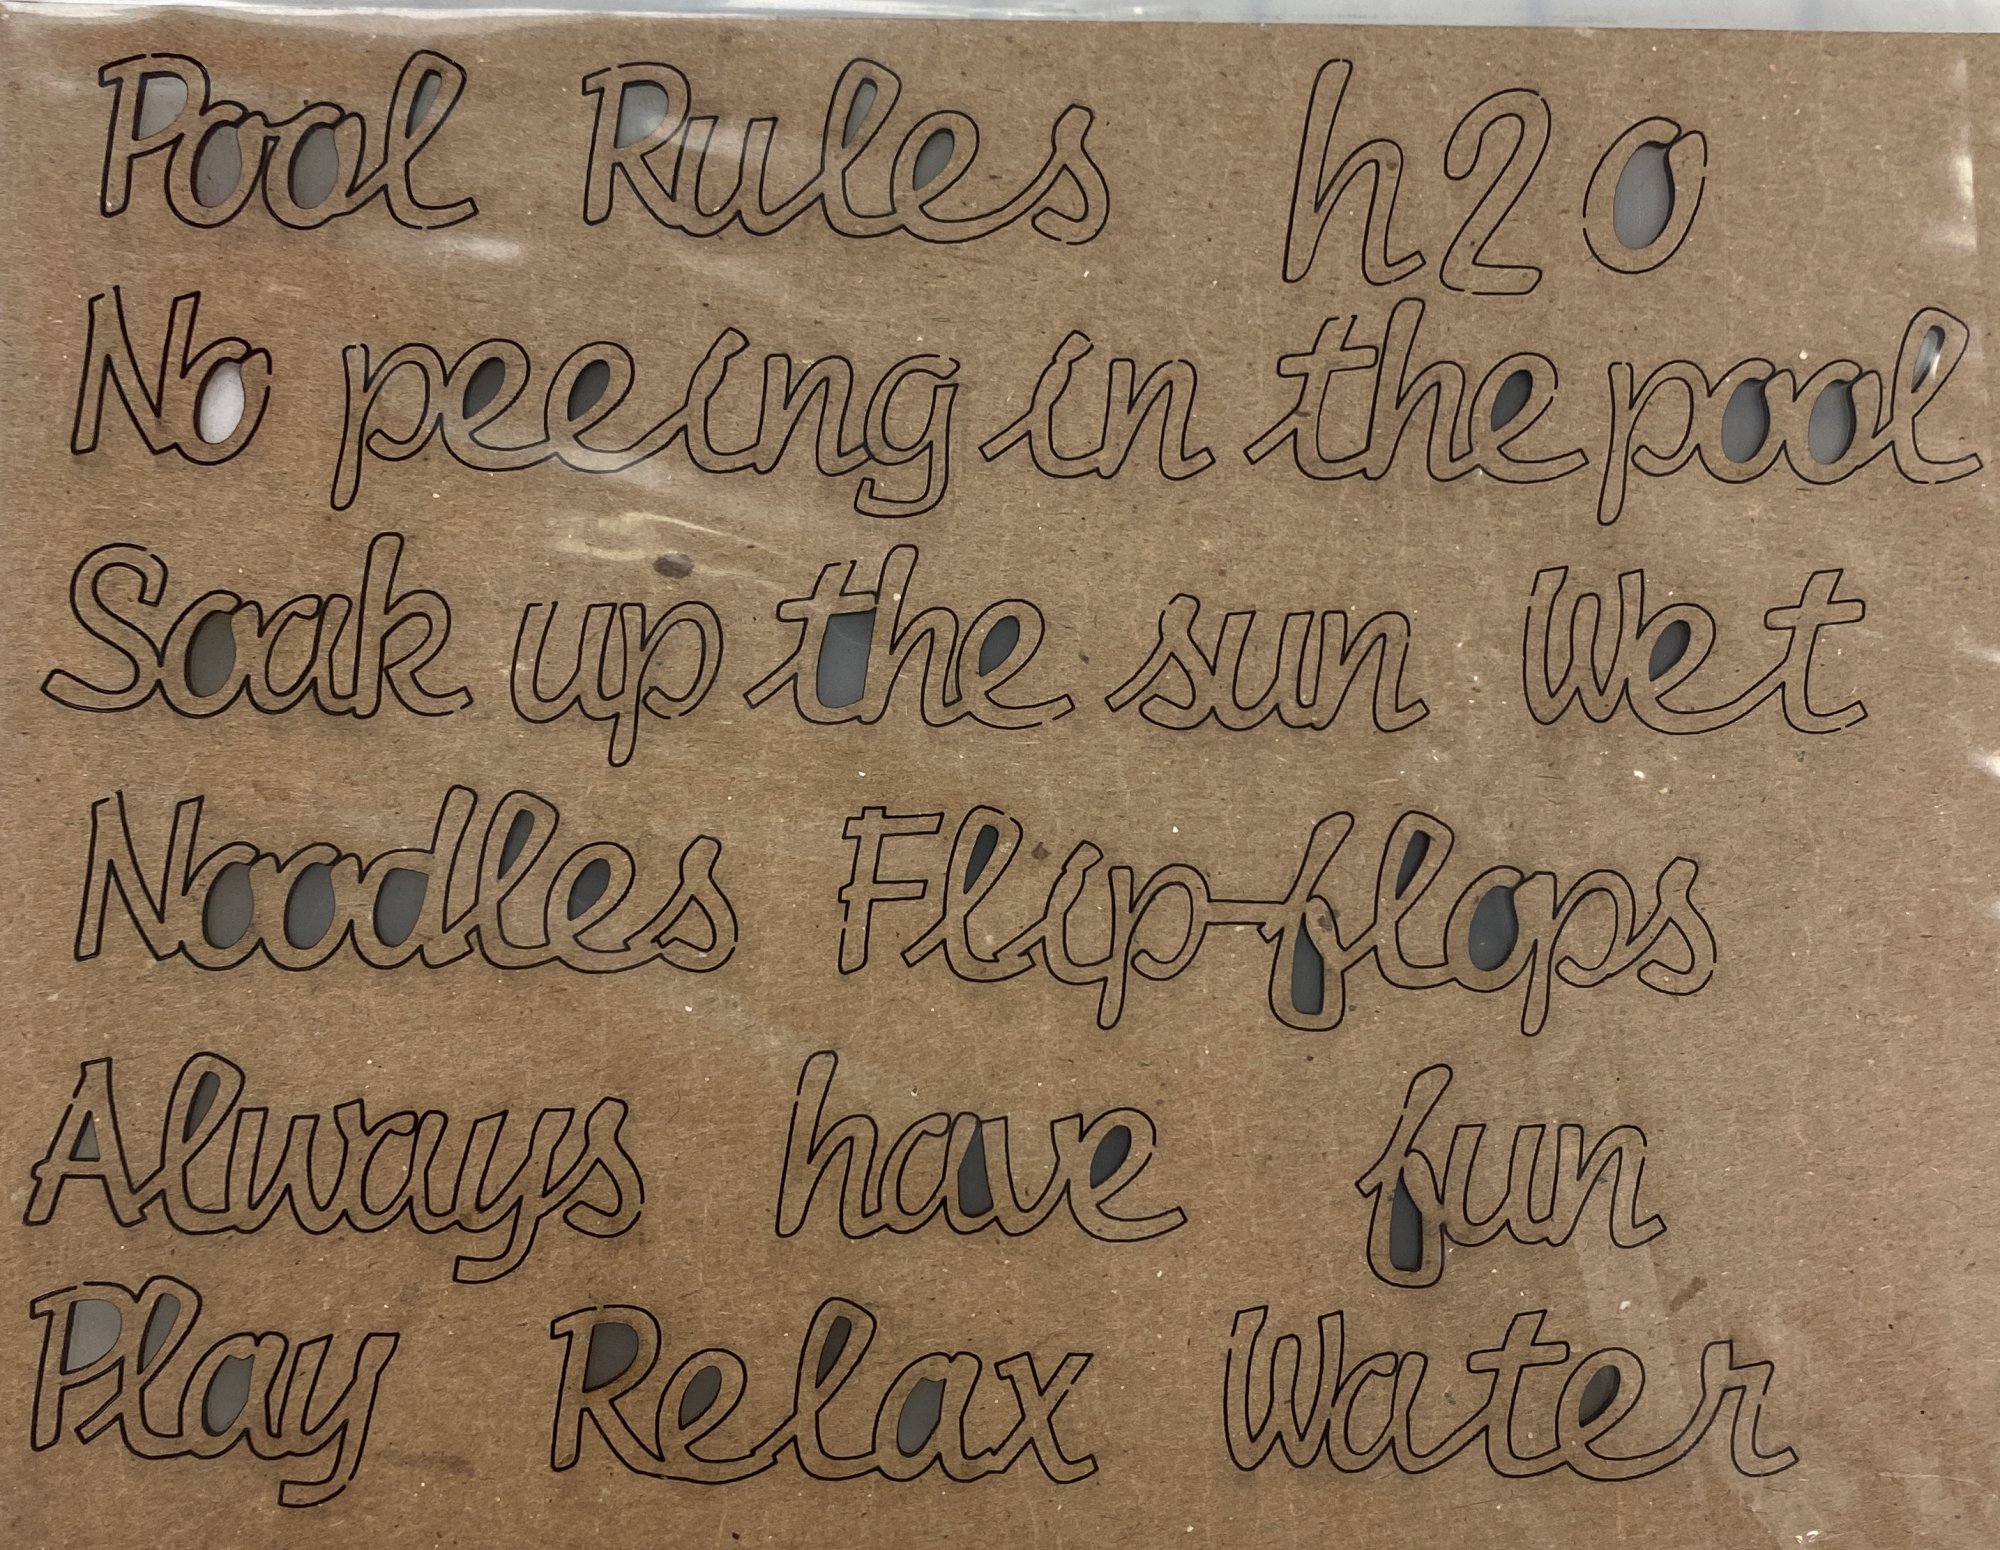 Pool Rules h2o
No peeing in the pool
Soak up the sun Wet
Noodles Flip-flops
Always have fun
Play Relax Water